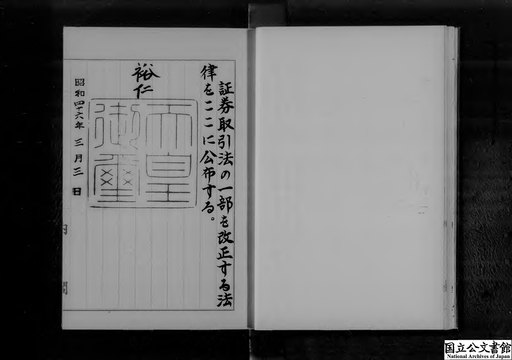 証券取引法の一部を改正する法
律をここに公布する。
裕仁
天皇
御璽
昭和四十六年三月三日
内閣
国立公文書館
National Archives of Japan